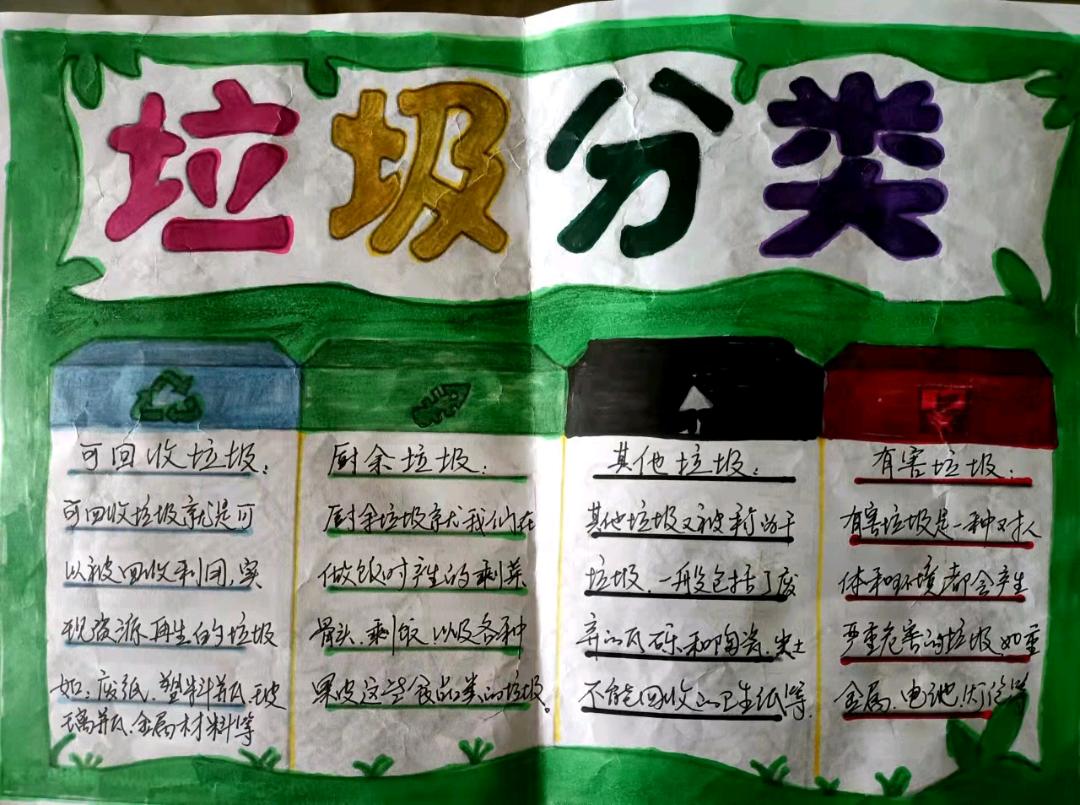 垃圾分类
可回收垃圾:
可回收垃圾就是可
以被回收利团,实
现资源再生的垃圾
如:废纸.塑料瓶.玻
璃瓶.金属材料等
厨余垃圾:
厨余垃圾就我们在
做饭时产生的剩菜
骨头.剩饭.以及各种
果皮这些食品类的垃圾。
其他垃圾:
其他垃圾又被称为干
垃圾.一般包括了废
弃的瓦砾和陶瓷.尘土
不能回收的卫生纸等.
有害垃圾:
有害垃圾是一种对人
体和环境都会产生
严重危害的垃圾如重
金属.电池.灯泡等